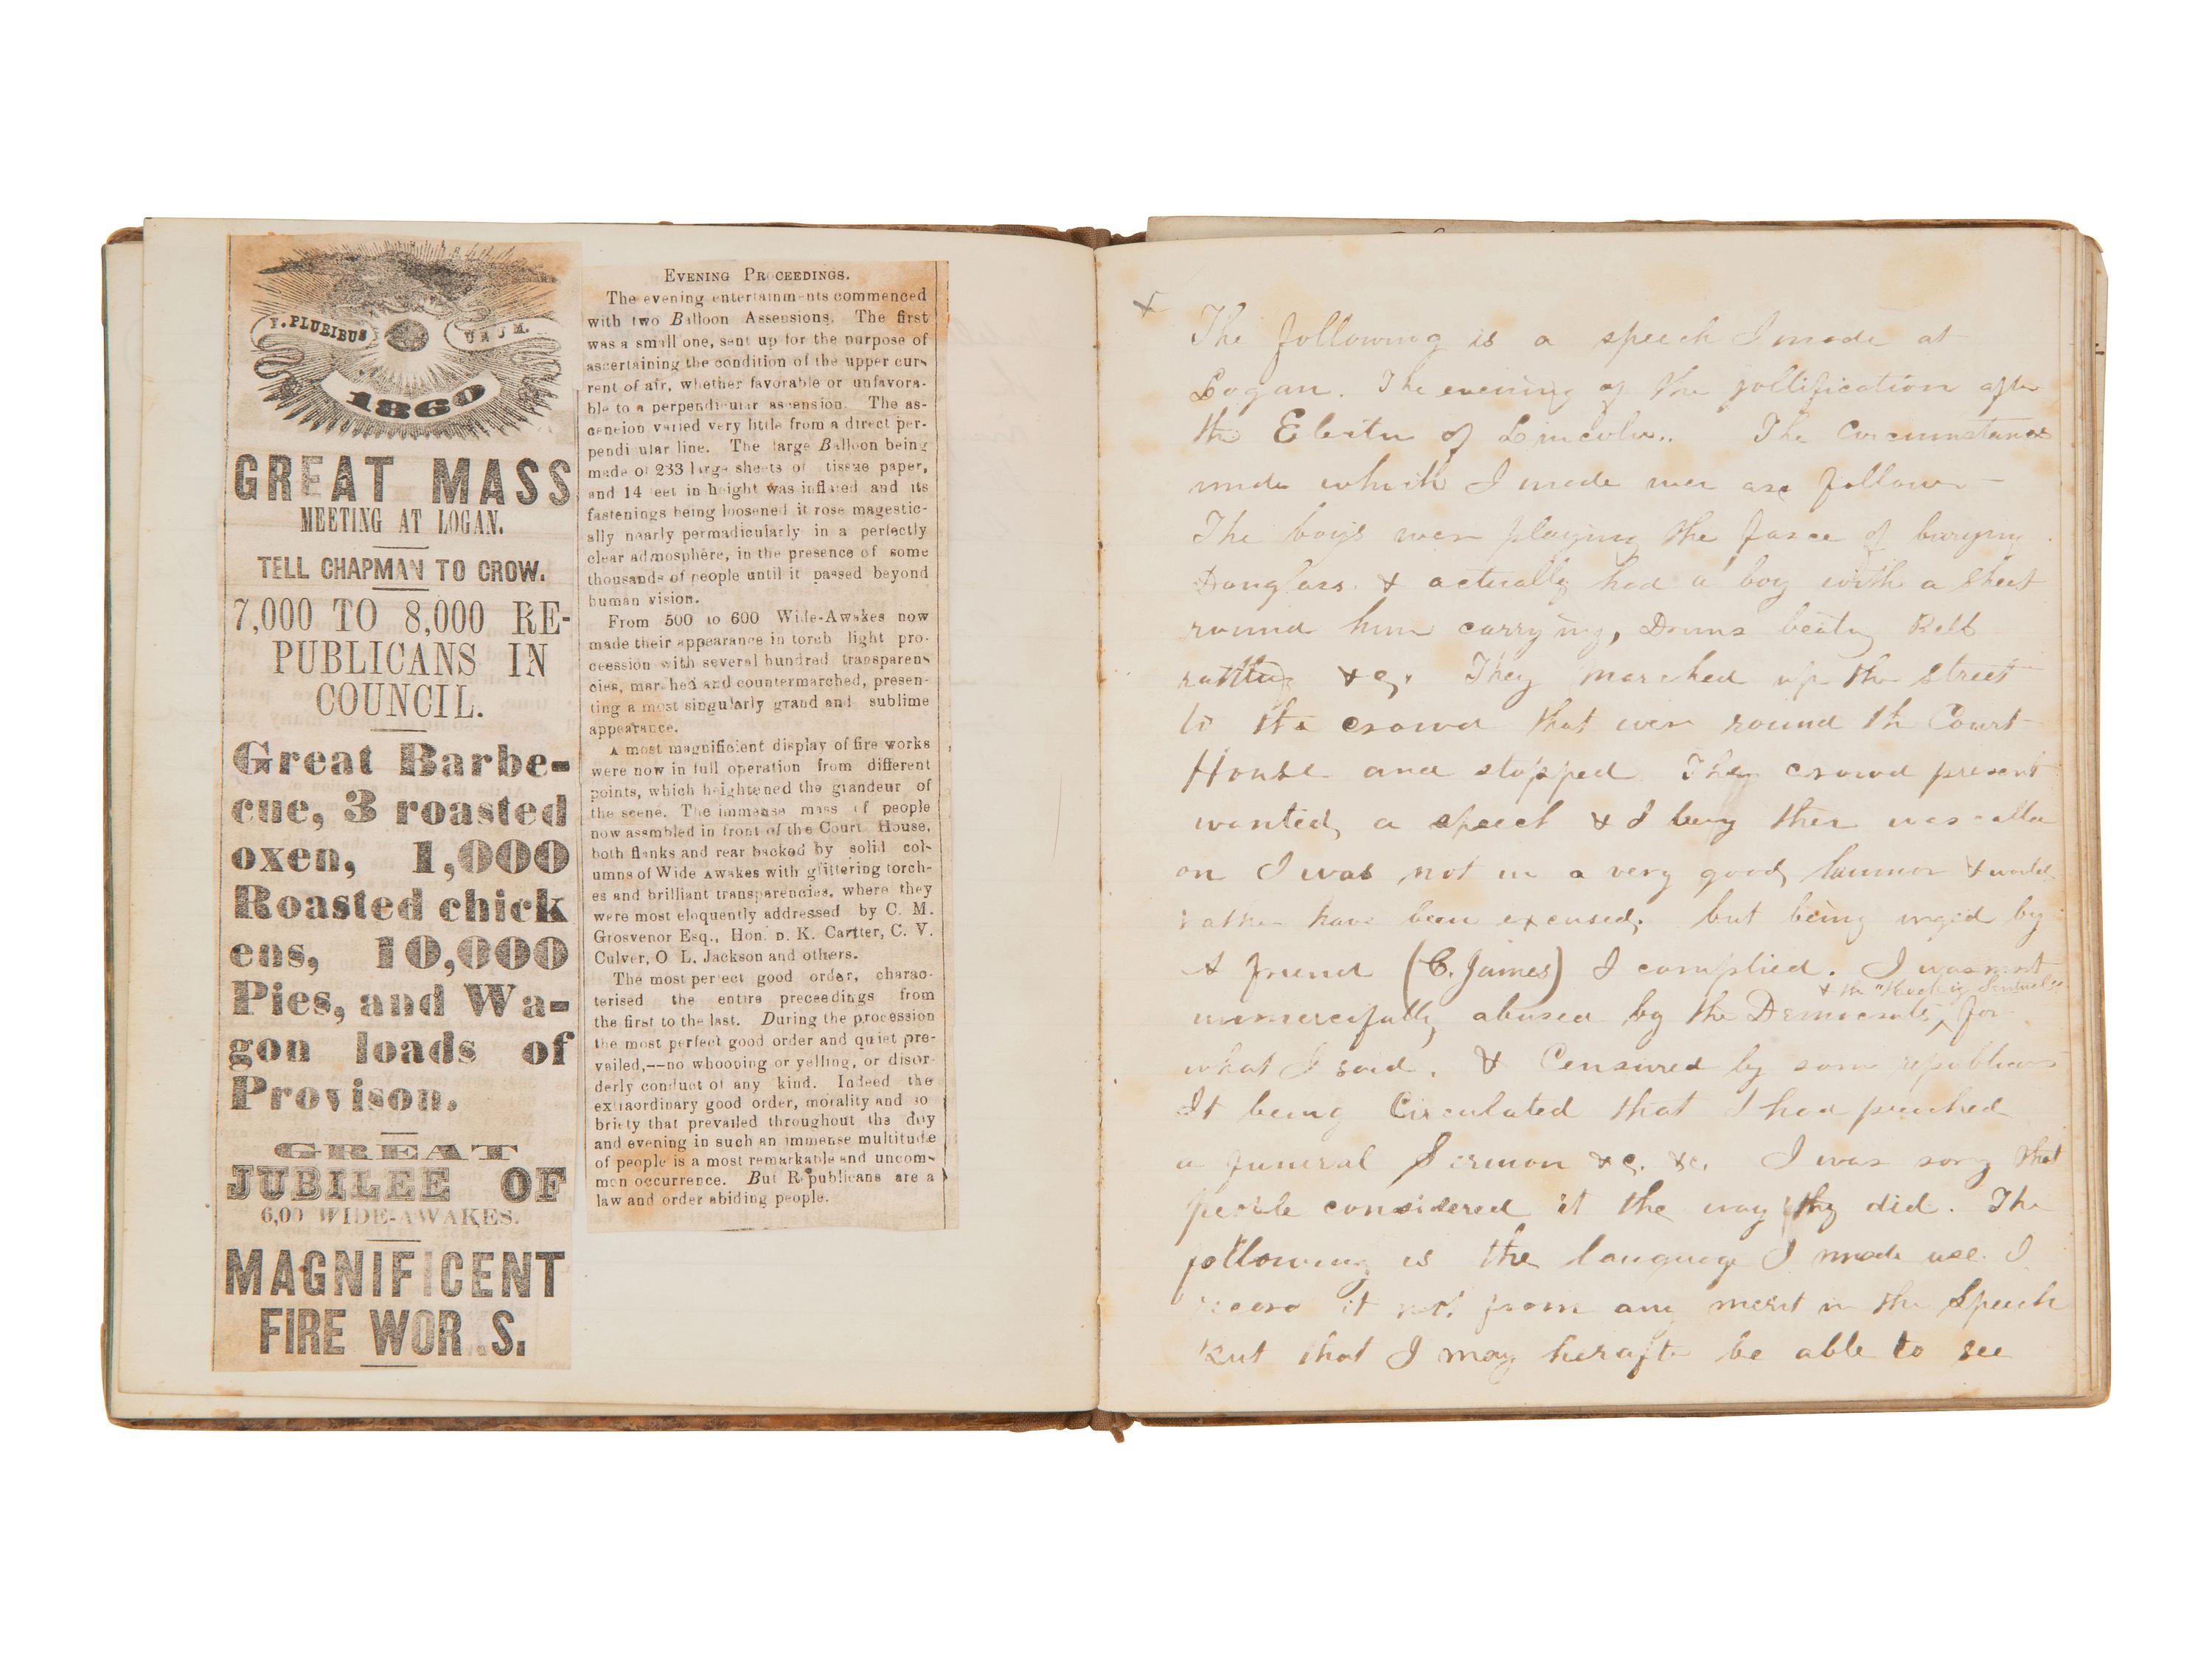 E. PLURIBUS UNUM.
1860
GREAT MASS
MEETING AT LOGAN.
TELL CHAPMAN TO CROW.
7,000 TO 8,000 RE-
PUBLICANS IN
COUNCIL.
Great Barbe-
cue, 3 roasted
oxen, 1,000
Roasted chick
ens, 10,000
Pies, and Wa-
gon loads of
Provison.
GREAT
JUBILEE OF
6,00 WIDE-AWAKES.
MAGNIFICENT
FIRE WOR S.
EVENING PR CEEDINGS.
The evening entertainments commenced
with two Balloon Assensions. The first
was a small one, sent up for the purpose of
ascertaining the condition of the upper cur-
rent of air, whether favorable or unfavora-
ble to a perpendicular ascension. The as-
cencion varied very little from a direct per-
pendi ular line. The large Balloon being
made of 233 large sheets of tissue paper,
and 14 feet in height was inflated and its
fastenings being loosened it rose magestic-
ally nearly permadicularly in a perfectly
clear admosphere, in the presence of some
thousands of people until it passed beyond
human vision.
From 500 to 600 Wide-Awakes now
made their appearance in torch light pro-
ceession with several hundred transparen-
cies, marched and countermarched, presen-
ting a most singularly grand and sublime
appearance.
A most magnificient display of fire works
were now in full operation from different
points, which heightened the grandeur of
the scene. The immense mass of people
now assmbled in front of the Court House,
both flanks and rear backed by solid col-
umns of Wide Awakes with glittering torch-
es and brilliant transparencies, where they
were most eloquently addressed by C. M.
Grosvenor Esq., Hon. D. K. Cartter, C. V.
Culver, O L. Jackson and others.
The most perfect good order, charac-
terised the entire preceedings from
the first to the last. During the procession
the most perfect good order and quiet pre-
vailed,--no whooping or yelling, or disor-
derly conduct of any kind. Indeed the
extraordinary good order, morality and so
briety that prevailed throughout the day
and evening in such an immense multitude
of people is a most remarkable and uncom-
mon occurrence. But Republicans are a
law and order abiding people.
x
The following is a speech I made at
Logan. The evening of the jollification after
the Electn of Lincoln.. The Circumstances
unde which I made wer as follows—
The boys wer playing the farce of burying
Douglass. & actually had a boy with a sheet
round him carrying, Drums beating Bell
rattling &c. They marched up the street
to the crowd that wer round th Court
House and stopped The crowd present
wanted a speech & I being ther was calld
on I was not in a very good humor & would
rather have been excused. but being urged by
A friend (C. James) I complied. I was most
unmercifully abused by the Democrats, & the for
what I said. & Censured by som republicans
It being Circulated that I had preached
a funeral Sermon &c. &c. I was sory that
people considered it the way thy did. The
following is the language I made use. I
it not from any merit in the Speech
But that I may herafte be able to see